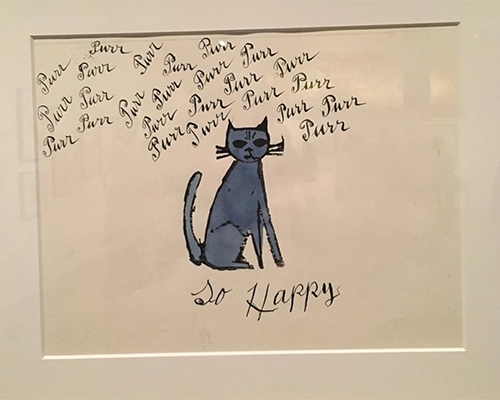 Purr Purr Purr Purr
Purr Purr Purr Purr Purr
Purr Purr Purr Purr
Purr Purr Purr Purr Purr Purr
Purr Purr Purr Purr
Purr Purr
So Happy